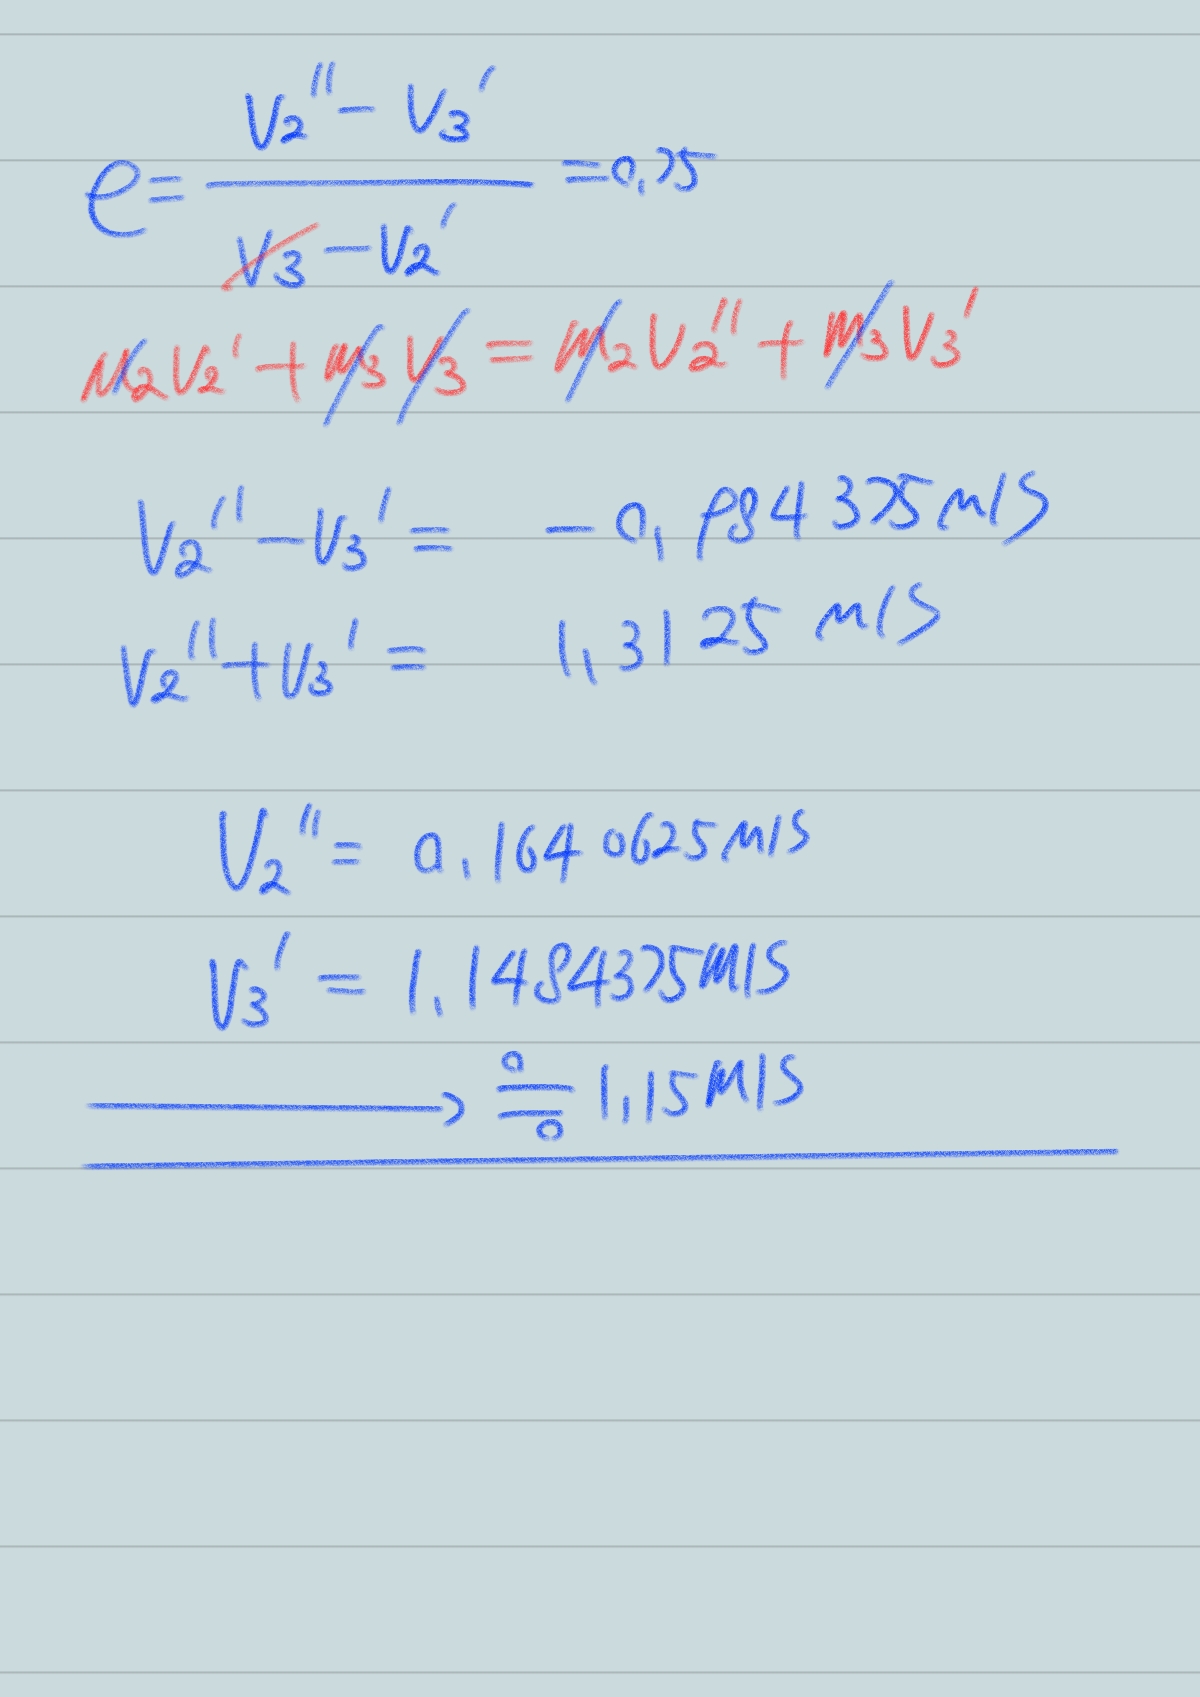 e = (V₂'' − V₃') / (V₃ − V₂') = 0,75
m₂V₂' + m₃V₃ = m₂V₂'' + m₃V₃'
V₂'' − V₃' = − 0,984375 m/s
V₂'' + V₃' = 1,3125 m/s
V₂'' = 0,1640625 m/s
V₃' = 1,1484375 m/s
→ ≒ 1,15 m/s